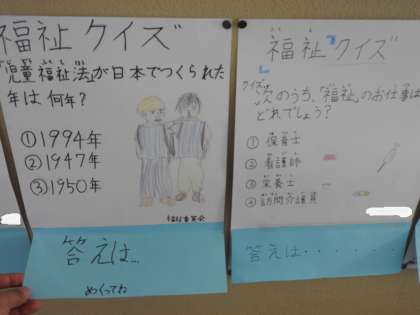 福祉クイズ
「児童福祉法」が日本でつくられた
年は何年？
①1994年
②1947年
③1950年
福祉委員会
答えは…
めくってね
福祉クイズ
クイズ
次のうち、「福祉」のお仕事は
どれでしょう？
① 保育士
② 看護師
③ 栄養士
④ 訪問介護員
答えは・・・・・・